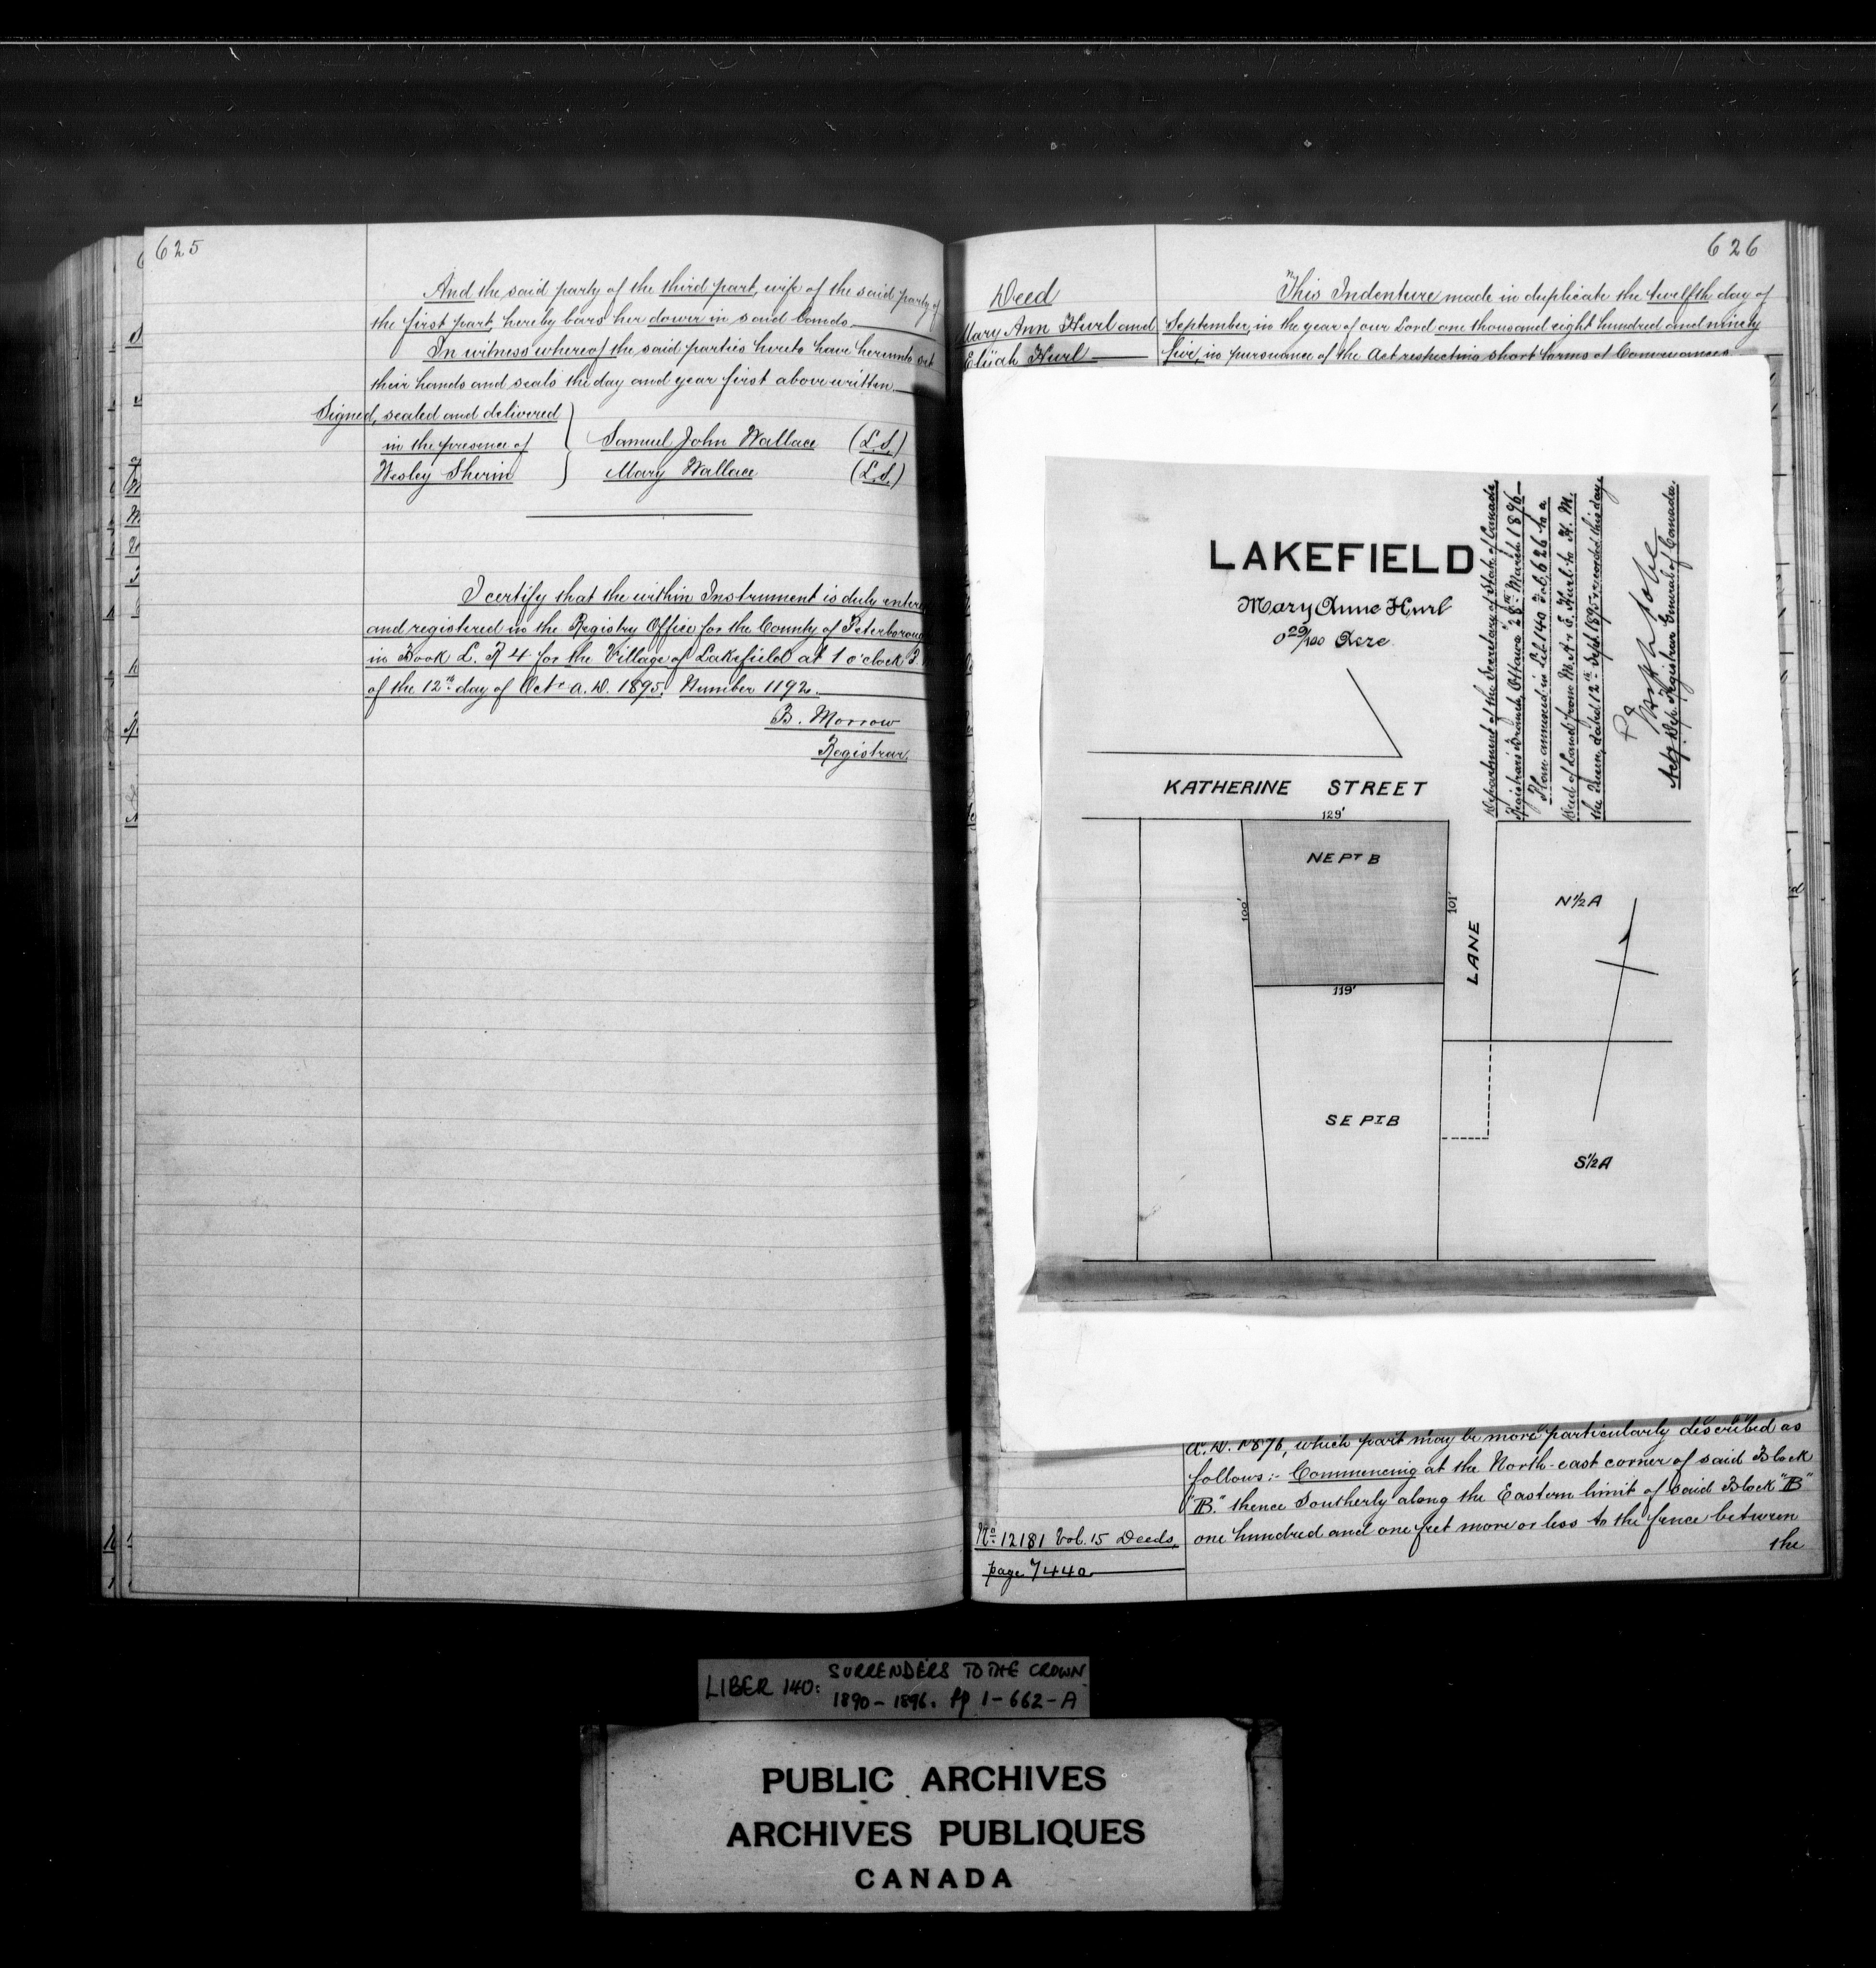 625
And the said party of the third part, wife of the said party of
the first part, hereby bars her dower in said lands.
In witness whereof the said parties hereto have hereunto set
their hands and seals the day and year first above written.
Signed, sealed and delivered
in the presence of
Wesley Sherin
Samuel John Wallace (L.S.)
Mary Wallace (L.S.)
I certify that the within Instrument is duly entered
and registered in the Registry Office for the County of Peterborough
in Book L. R 4 for the Village of Lakefield at 1 o'clock P.
of the 12th day of Octr A.D. 1895. Number 1192.
B. Morrow
Registrar.
626
Deed
Mary Ann Hurl and
Elijah Hurl
This Indenture made in duplicate the twelfth day of
September, in the year of our Lord one thousand eight hundred and ninety
five, in pursuance of the Act respecting short forms of Conveyances
LAKEFIELD
Mary Anne Hurl
0 29/100 Acre.
Department of the Secretary of State of Canada,
Registrar's Branch, Ottawa 28th March 1896
Plan annexed in Lib. 140 Fol. 626 to a
Deed of Land from M. A. & E. Hurl to H. M.
the Queen, dated 12th Sept. 1895 & recorded this day.
Actg Dep. Registrar General of Canada.
KATHERINE STREET
129'
NE PT B
100'
101'
LANE
N½A
119'
SE PT B
S½A
A.D. 1876, which part may be more particularly described as
follows:- Commencing at the North-east corner of said Block
"B." thence Southerly along the Eastern limit of said Block "B"
one hundred and one feet more or less to the fence between
the
No. 12181 Vol. 15 Deeds,
page 7440.
LIBER 140: SURRENDERS TO THE CROWN
1890-1896. pp 1-662-A
PUBLIC ARCHIVES
ARCHIVES PUBLIQUES
CANADA